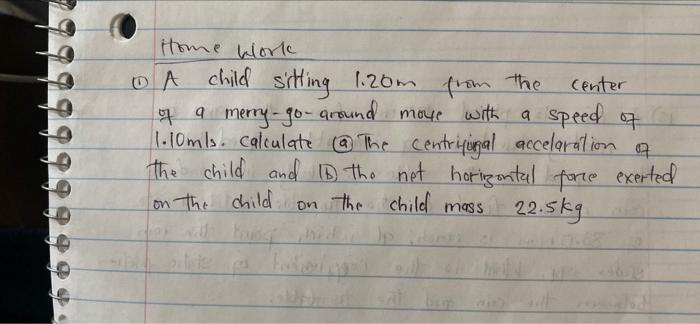 Home Work
① A child sitting 1.20m from the center
of a merry-go-around move with a speed of
1.10m/s. calculate ⓐ The centrifugal accelaration of
the child and ⓑ the net horizontal force exerted
on the child on the child mass 22.5kg